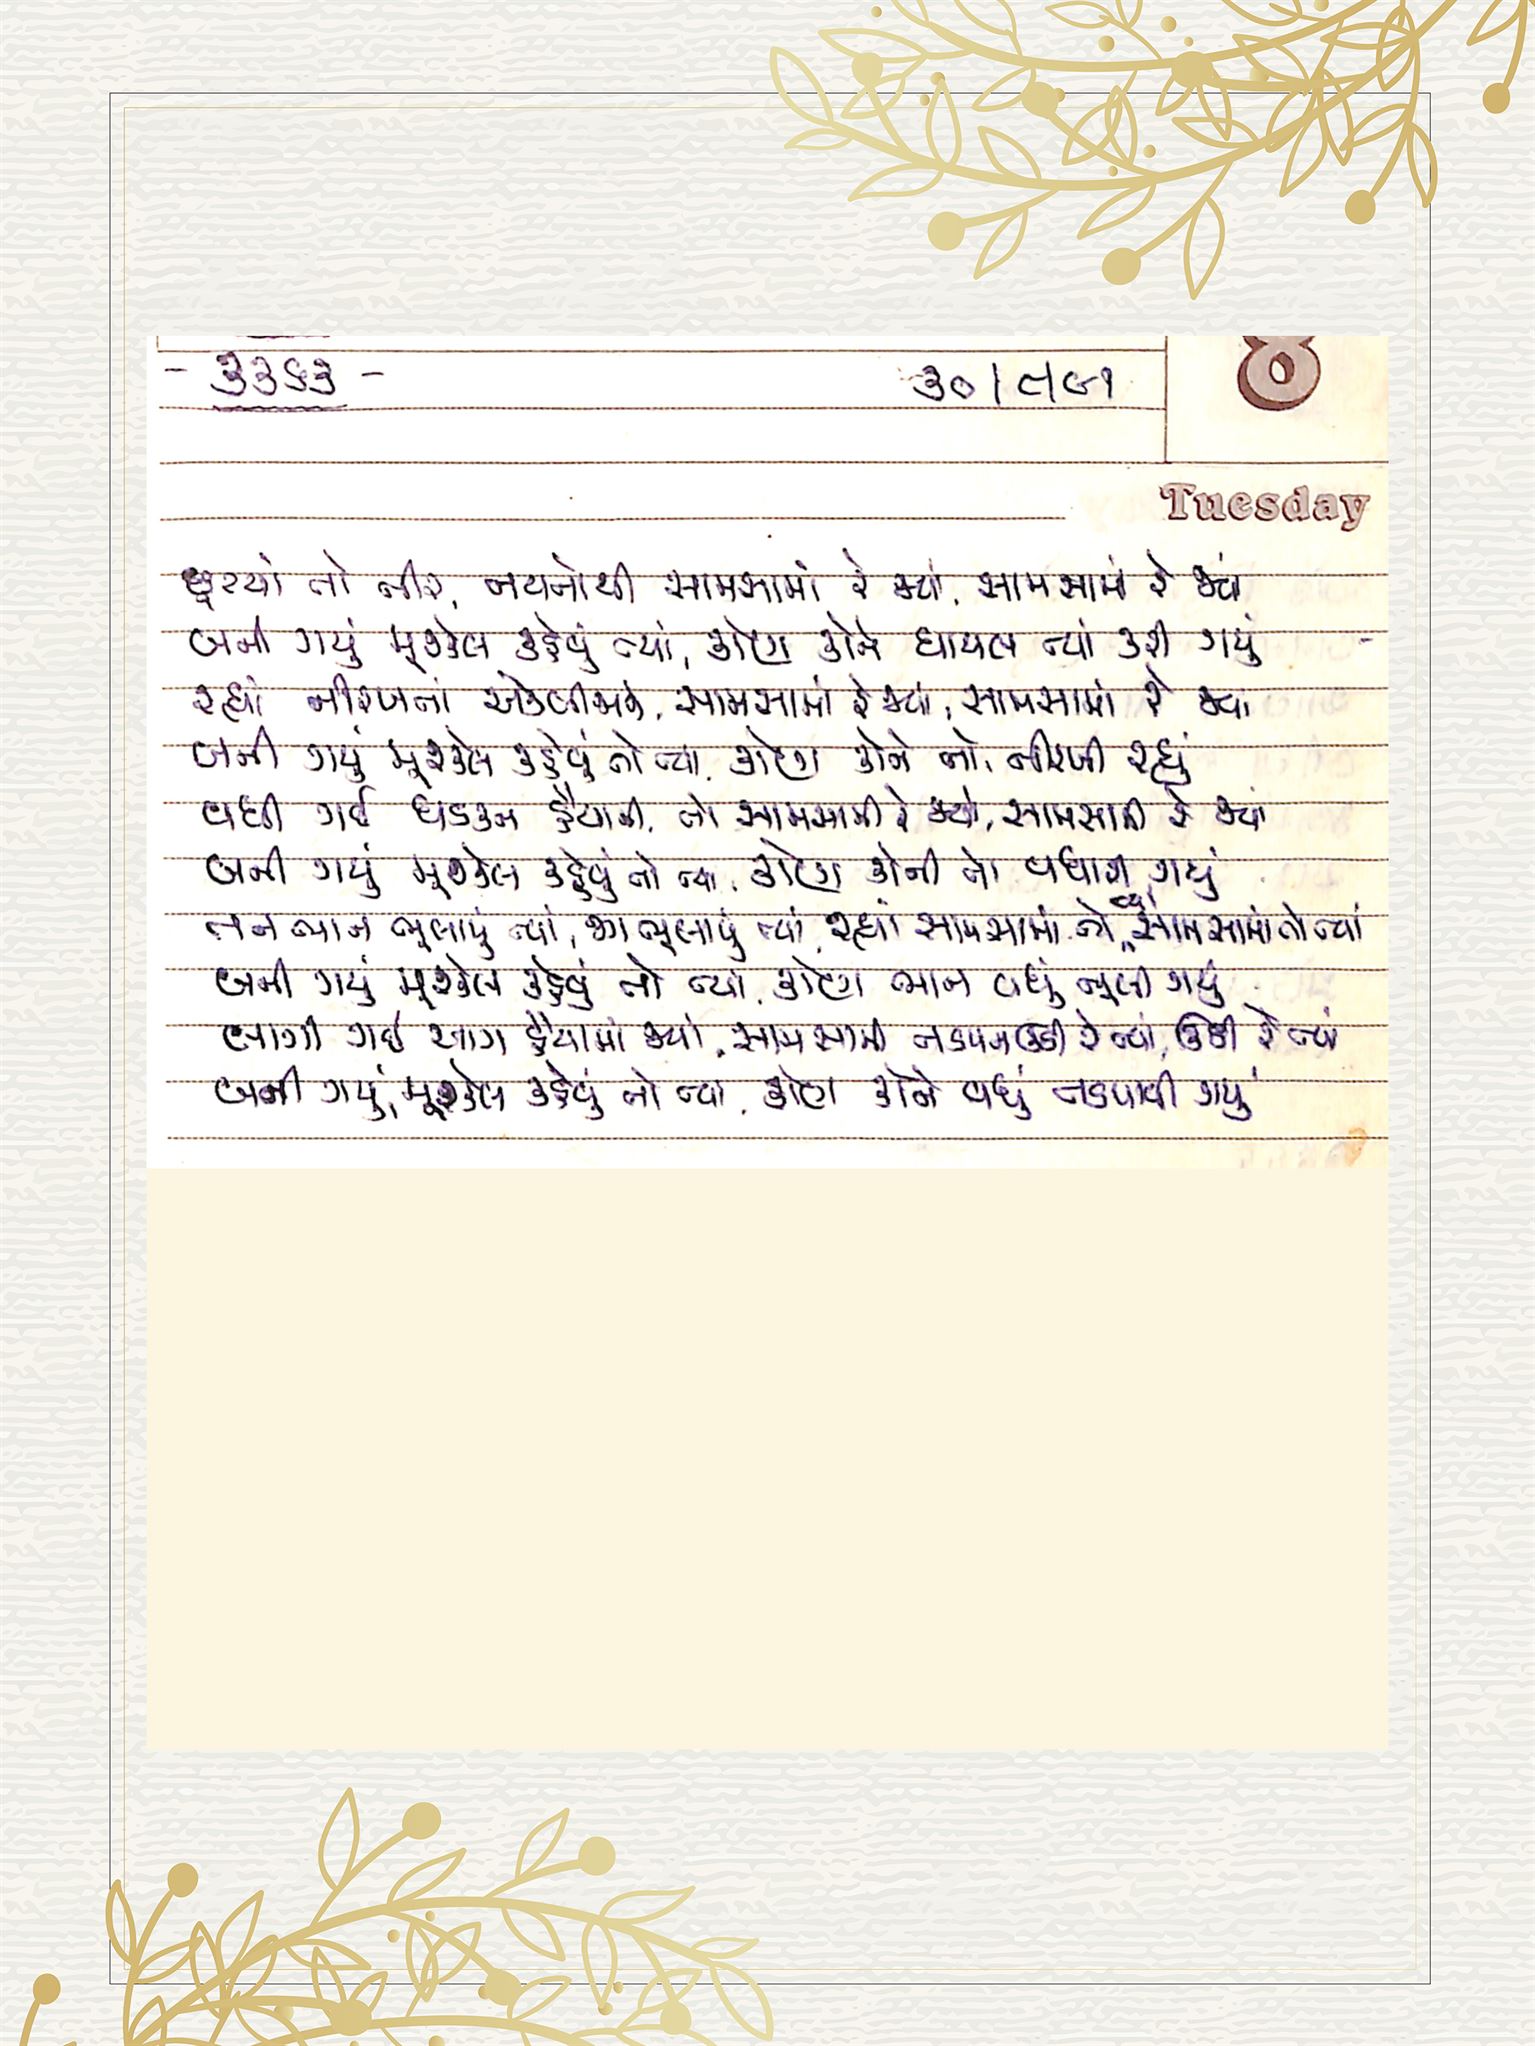 - ૩૩૬૩ -
૩૦/૮/૯૧
8
Tuesday
છૂટયાં તો તીર, નયનોથી સામસામાં રે જ્યાં, સામસામાં રે જ્યાં
બની ગયું મુશ્કેલ કહેવું ત્યાં, કોણ કોને ઘાયલ ત્યાં કરી ગયું
રહ્યાં નીરખતાં એકબીજાને, સામસામાં રે જ્યાં, સામસામાં રે જ્યાં
બની ગયું મુશ્કેલ કહેવું તો ત્યાં, કોણ કોને તો, નીરખી રહ્યું
વધી ગઈ ધડકન હૈયાની, તો સામસામી રે જ્યાં, સામસામી રે જ્યાં
બની ગયું મુશ્કેલ કહેવું તો ત્યાં, કોણ કોની તો વધારી ગયું
તન ભાન ભૂલાયું ત્યાં, જગ ભૂલાયું ત્યાં, રહ્યાં સામસામાં તો જ્યાં, સામસામાં તો જ્યાં
બની ગયું મુશ્કેલ કહેવું તો ત્યાં, કોણ ભાન વધું ભૂલી ગયું
લાગી ગઈ આગ હૈયામાં જ્યાં, સામસામી તડપન ઉઠી રે ત્યાં, ઉઠી રે ત્યાં
બની ગયું, મુશ્કેલ કહેવું તો ત્યાં, કોણ કોને વધું તડપાવી ગયું